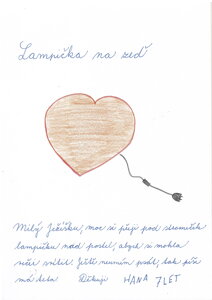 Lampička na zeď
Milý Ježíšku, moc si přeji pod stromeček
lampičku nad postel, abych si mohla
večer svítit. Ještě neumím psát, tak píše
má teta Děkuji HANA 7 LET